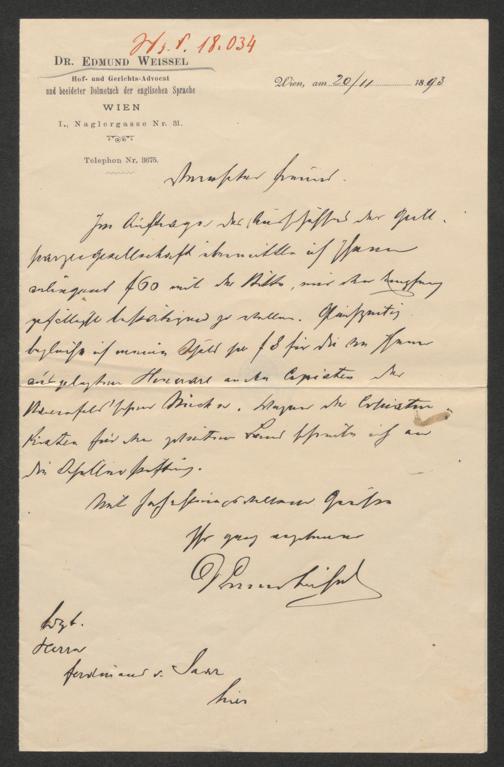 Hs. S. 18.034
DR. EDMUND WEISSEL
Hof- und Gerichts-Advocat
und beeideter Dolmetsch der englischen Sprache
WIEN
I., Naglergasse Nr. 31.
Telephon Nr. 3675.
Wien, am 20/11 1893
Verehrter Freund.
Im Auftrage des Ausschusses der Grill-
parzergesellschaft übermittle ich Ihnen
f 60 mit der Bitte, mir den Empfang
gefälligst bestätigen zu wollen. Gleichzeitig
begleiche ich meine Schuld per f 8 für die von Ihnen
ausgelegten Honorare an den Copisten der
Bauernfeld'schen Bücher. Wegen der
Kosten für den zweiten Band schreibe ich an
die Schillerstiftung.
Mit Grüßen
Ihr ganz ergebener
Wolgb.
Herrn
Ferdinand v. Saar
hier